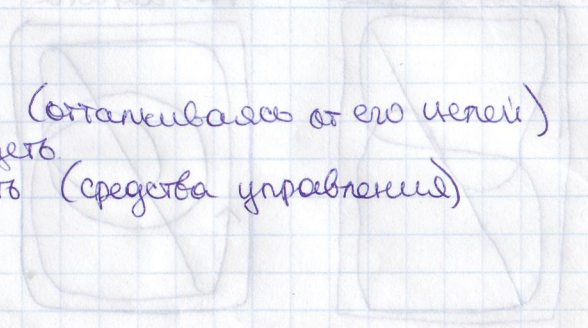 (отталкиваясь от его целей)
еть
ть (средства управления)